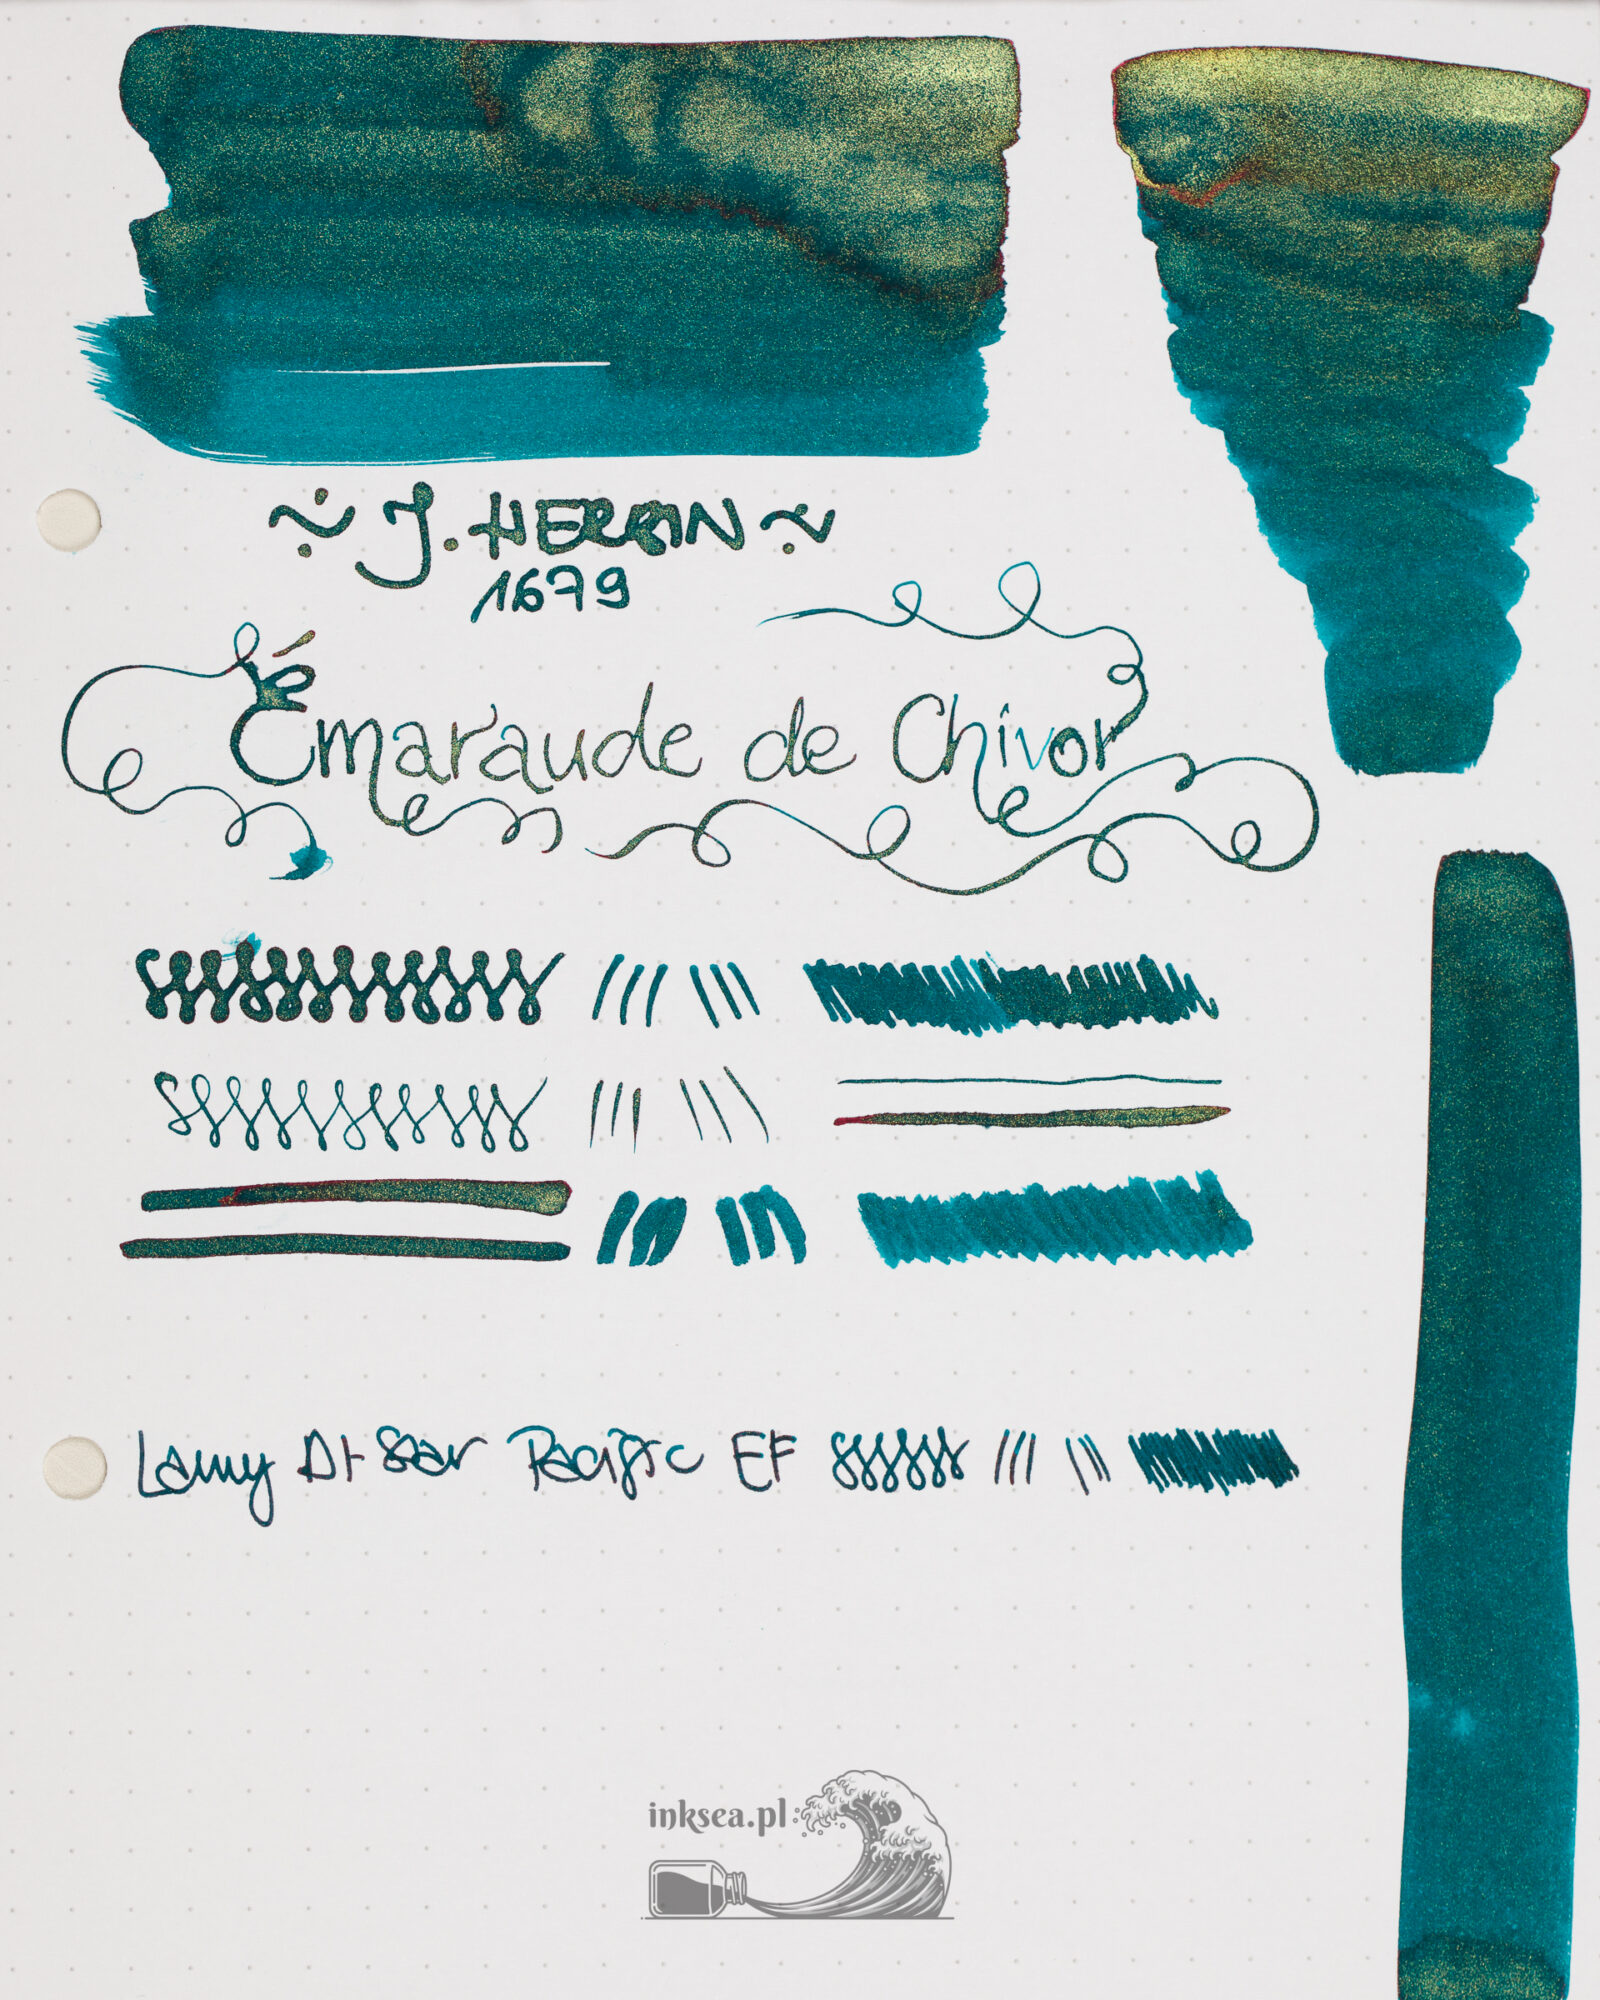 ~ J. HERBIN ~
1679
Émeraude de Chivor
Lamy Al Star Pacific EF
inksea.pl